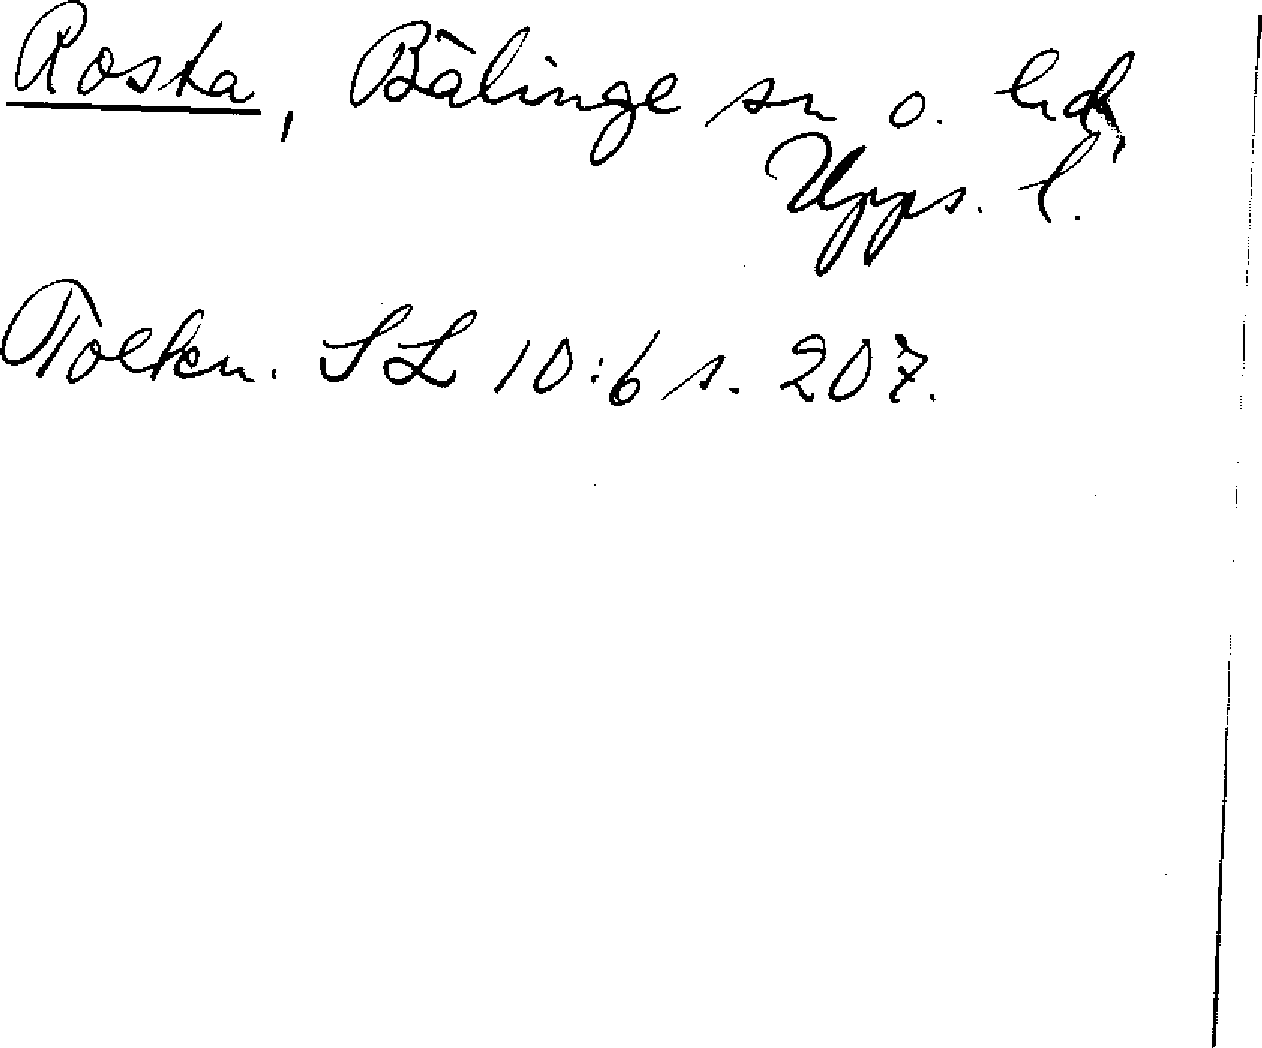 Rosta, Bälinge sn o. hd,
Upps. l.
Tolkn. SL 10:6 s. 207.